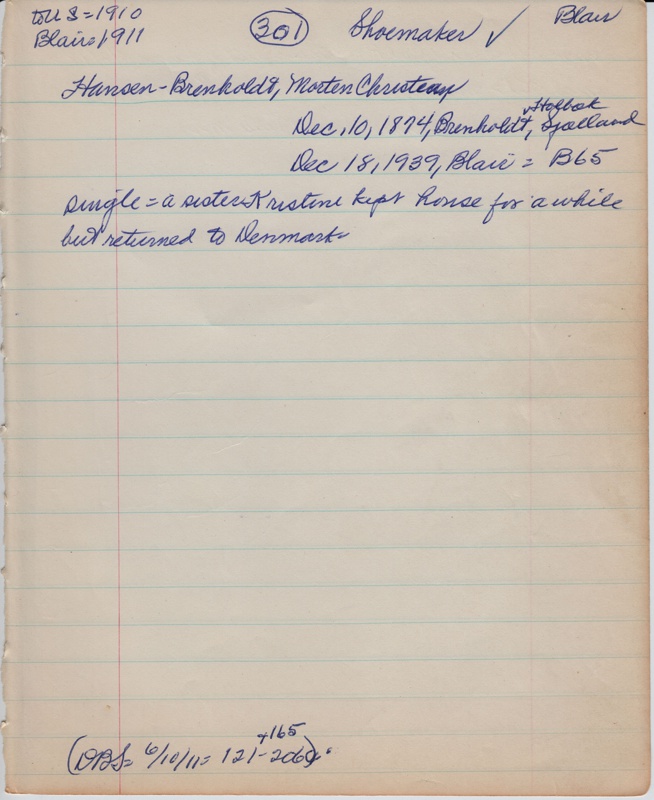 to U S=1910
Blair=1911
301
Shoemaker ✓
Blair
Hansen-Brenholdt, Morten Christian
Holbæk
Dec, 10, 1874, Brenholdt, Sjælland
Dec 18, 1939, Blair = B65
single = a sister Kristine kept house for a while
but returned to Denmark=
+165
(DBS= 6/10/11= 121-206